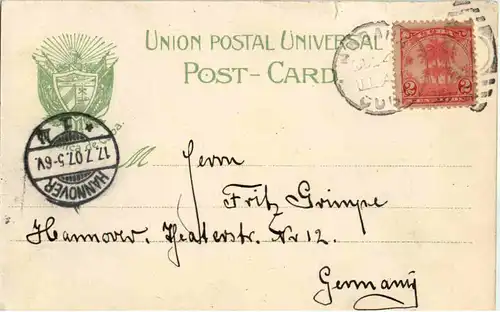 UNION POSTAL UNIVERSAL
POST-CARD
CUBA
2 2
HANNOVER
17.7.07.5-6V.
M
Herrn
Fritz Grimpe
Hannover. Theaterstr. Nr 12.
Germany